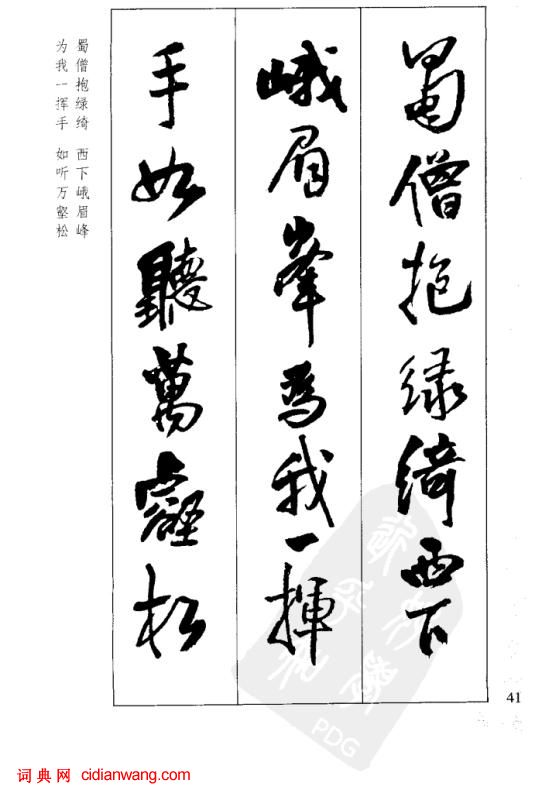 蜀僧抱绿綺西下
峨眉峯爲我一揮
手如聽萬壑松
蜀僧抱绿绮 西下峨眉峰
为我一挥手 如听万壑松
41
PDG
词典网 cidianwang.com